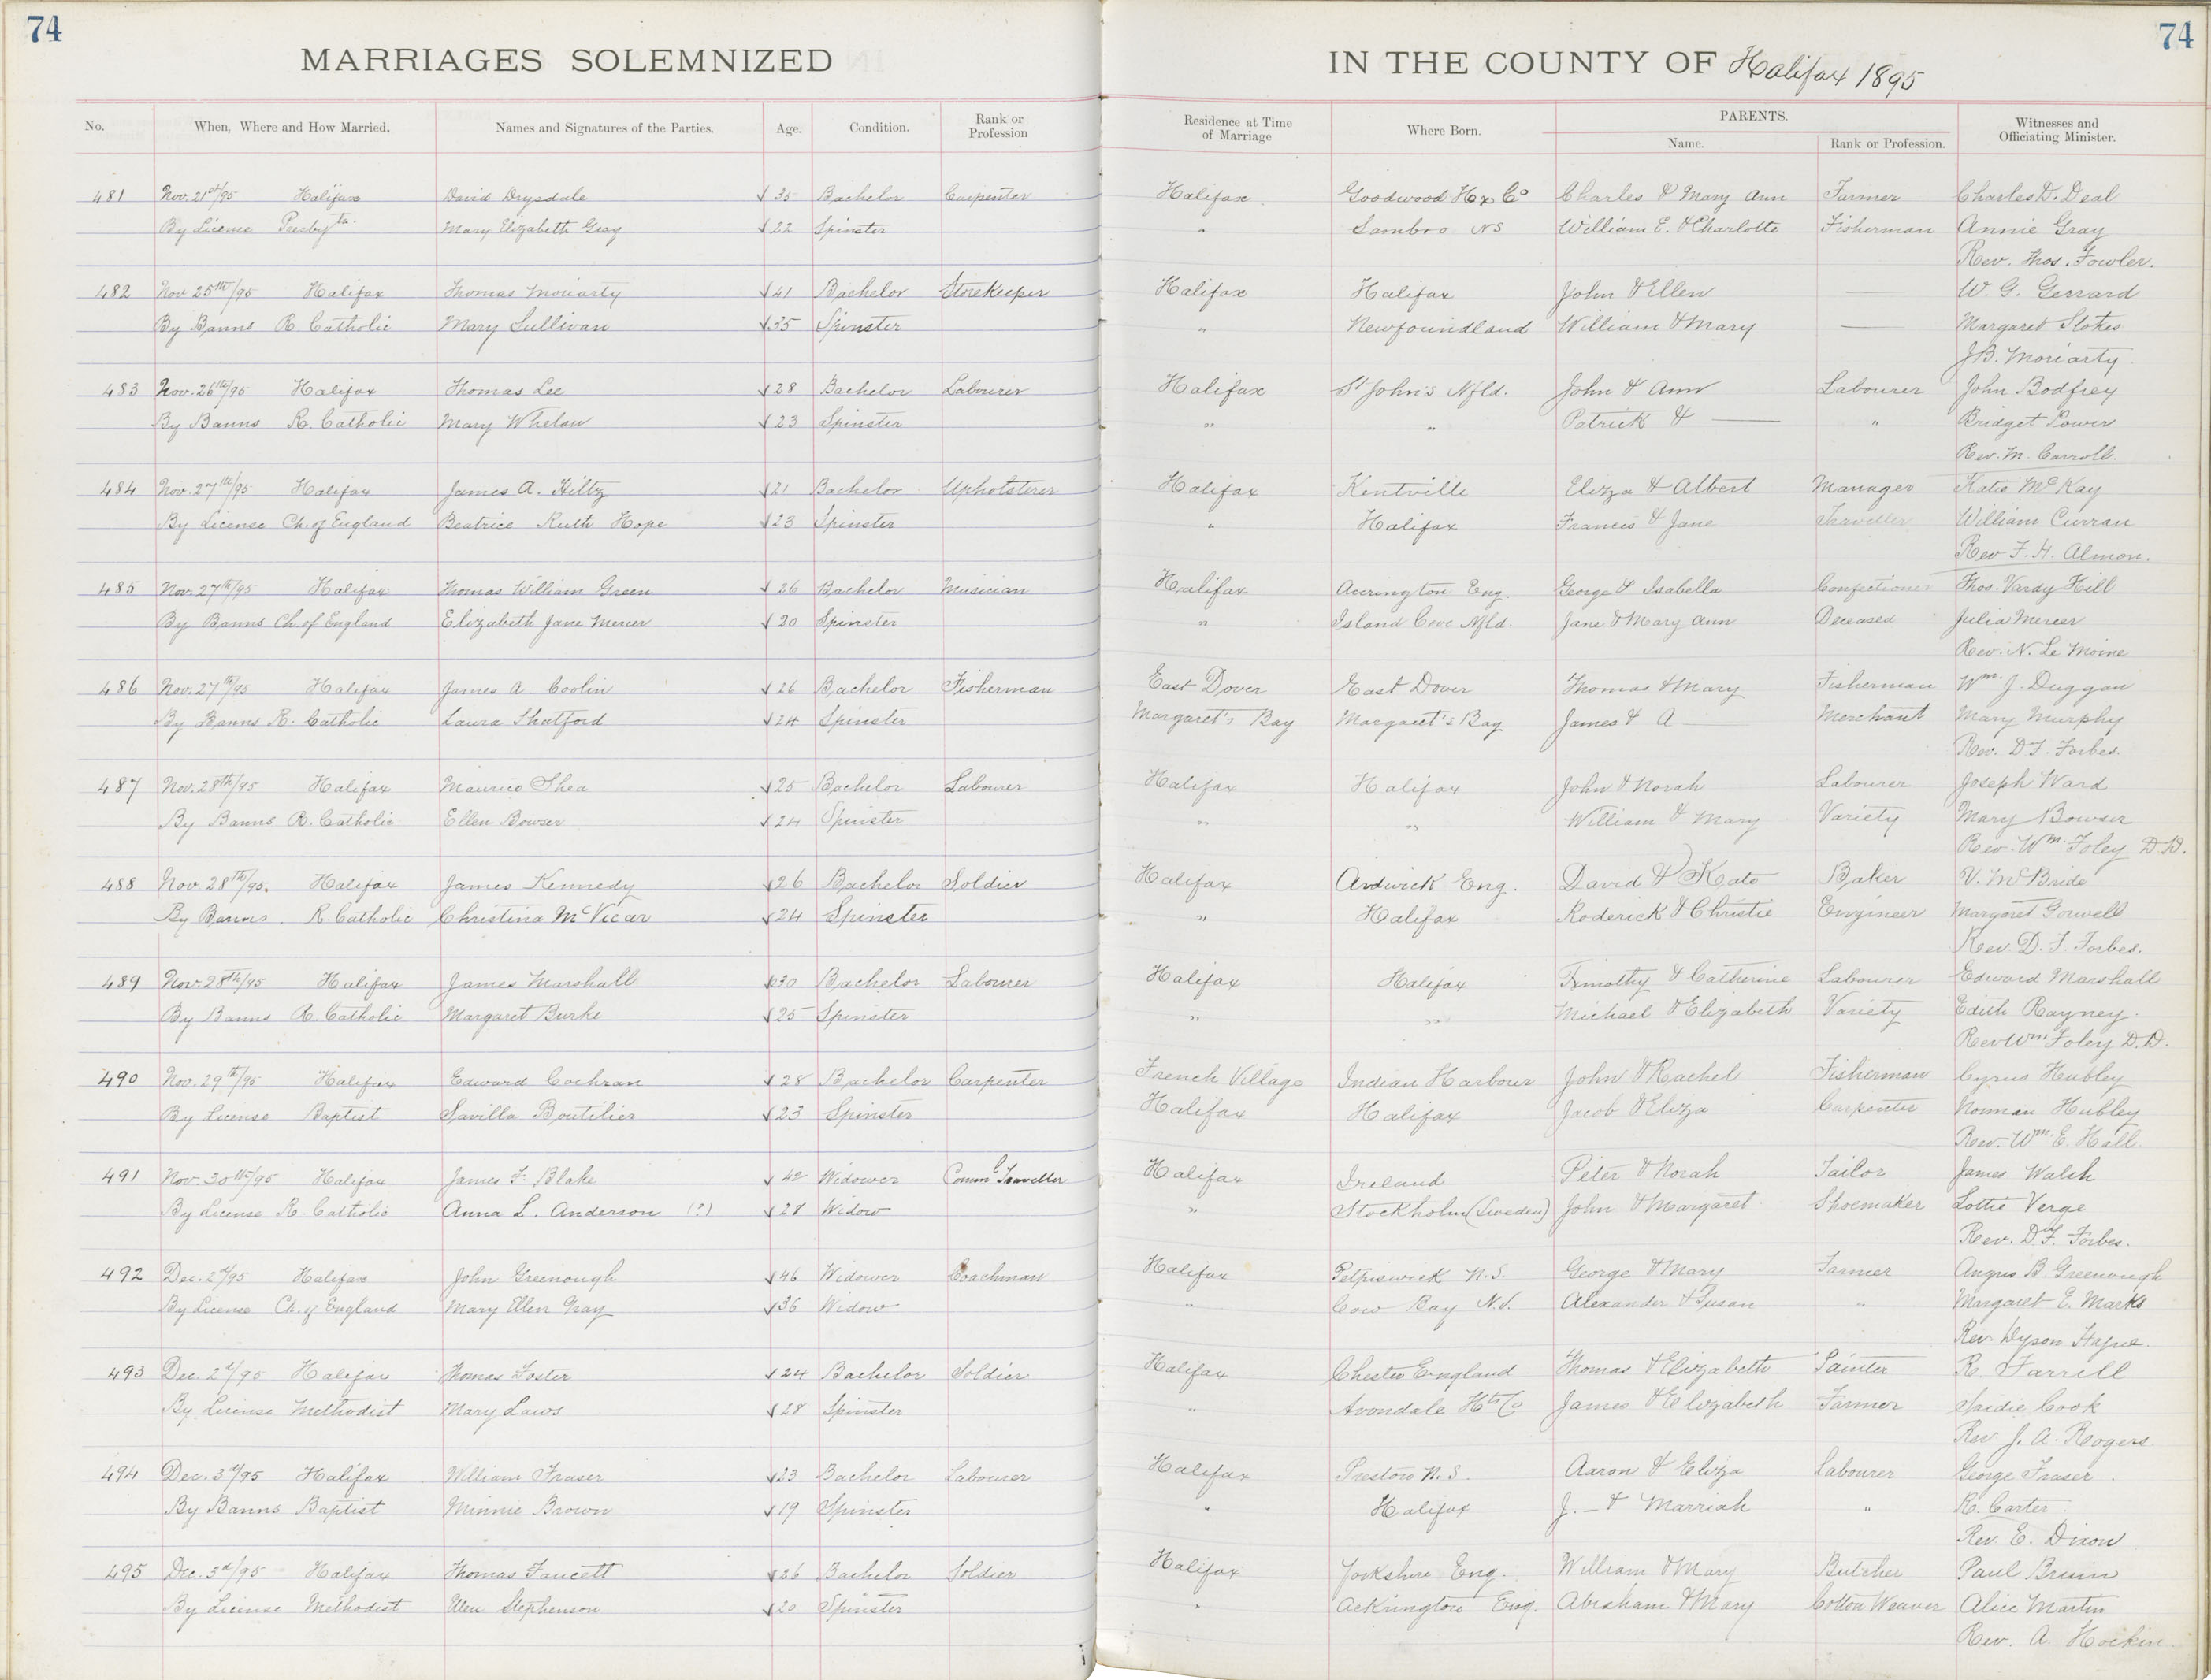 74 74
MARRIAGES SOLEMNIZED IN THE COUNTY OF Halifax 1895
No. When, Where and How Married. Names and Signatures of the Parties. Age. Condition. Rank or Profession Residence at Time of Marriage Where Born. PARENTS. Name. Rank or Profession. Witnesses and Officiating Minister.
481 Nov. 21st/95 Halifax David Drysdale √ 35 Bachelor Carpenter Halifax Goodwood Hx Co Charles & Mary Ann Farmer Charles D. Deal
By License Presbyta. Mary Elizabeth Gray √ 22 Spinster " Sambro NS William E. & Charlotte Fisherman Annie Gray
Rev. Thos. Fowler.
482 Nov 25th/95 Halifax Thomas Moriarty √ 41 Bachelor Storekeeper Halifax Halifax John & Ellen — W. G. Gerrard
By Banns R. Catholic Mary Sullivan √ 35 Spinster " Newfoundland William & Mary — Margaret Stokes
J B. Moriarty
483 Nov. 26th/95 Halifax Thomas Lee √ 28 Bachelor Labourer Halifax St John's Nfld. John & Ann Labourer John Bodfrey
By Banns R. Catholic Mary Whelan √ 23 Spinster " " Patrick & — " Bridget Power
Rev. M. Carroll.
484 Nov. 27th/95 Halifax James A. Hiltz √ 21 Bachelor Upholsterer Halifax Kentville Eliza & Albert Manager Katie McKay
By License Ch. of England Beatrice Ruth Hope √ 23 Spinster " Halifax Francis & Jane Traveller William Curran
Rev F. H. Almon.
485 Nov. 27th/95 Halifax Thomas William Green √ 26 Bachelor Musician Halifax Accrington Eng. George & Isabella Confectioner Thos. Vardy Hill
By Banns Ch. of England Elizabeth Jane Mercer √ 20 Spinster " Island Cove Nfld. Jane & Mary Ann Deceased Julia Mercer
Rev. N. Le Moine
486 Nov. 27th/95 Halifax James A. Coolin √ 26 Bachelor Fisherman East Dover East Dover Thomas & Mary Fisherman Wm. J. Duggan
By Banns R. Catholic Laura Shatford √ 24 Spinster Margaret's Bay Margaret's Bay James & A — Merchant Mary Murphy
Rev. D F. Forbes.
487 Nov. 28th/95 Halifax Maurice Shea √ 25 Bachelor Labourer Halifax Halifax John & Norah Labourer Joseph Ward
By Banns R. Catholic Ellen Bowser √ 24 Spinster " " William & Mary Variety Mary Bowser
Rev. Wm. Foley D.D.
488 Nov. 28th/95. Halifax James Kennedy √ 26 Bachelor Soldier Halifax Ardwick Eng. David & Kate Baker V. McBride
By Banns. R. Catholic Christina McVicar √ 24 Spinster " Halifax Roderick & Christie Engineer Margaret Gorwell
Rev. D. F. Forbes.
489 Nov. 28th/95 Halifax James Marshall √ 30 Bachelor Labourer Halifax Halifax Timothy & Catherine Labourer Edward Marshall
By Banns R. Catholic Margaret Burke √ 25 Spinster " " Michael & Elizabeth Variety Edith Rayney.
Rev Wm Foley D.D.
490 Nov. 29th/95 Halifax Edward Cochran √ 28 Bachelor Carpenter French Village Indian Harbour John & Rachel Fisherman Cyrus Hubley
By License Baptist Savilla Boutilier √ 23 Spinster Halifax Halifax Jacob & Eliza Carpenter Norman Hubley
Rev. Wm. E. Hall.
491 Nov. 30th/95 Halifax James F. Blake √ 42 Widower Comml Traveller Halifax Ireland Peter & Norah Tailor James Walsh
By License R. Catholic Anna L. Anderson (?) √ 28 Widow " Stockholm (Sweden) John & Margaret Shoemaker Lottie Verge
Rev. D. F. Forbes.
492 Dec. 2d/95 Halifax John Greenough √ 46 Widower Coachman Halifax Petpiswick N.S. George & Mary Farmer Angus B Greenough
By License Ch. of England Mary Ellen Gray √ 36 Widow " Cow Bay N.S. Alexander & Susan " Margaret E. Marks
Rev. Dyson Hague.
493 Dec. 2d/95 Halifax Thomas Foster √ 24 Bachelor Soldier Halifax Chester England Thomas & Elizabeth Painter R. Farrell
By License Methodist Mary Laws √ 28 Spinster " Avondale Hts Co James & Elizabeth Farmer Saidie Cook
Rev. J. A. Rogers.
494 Dec. 3d/95 Halifax William Fraser √ 23 Bachelor Labourer Halifax Preston N.S. Aaron & Eliza Labourer George Fraser.
By Banns Baptist Minnie Brown √ 19 Spinster " Halifax J. — & Marriah " R. Carter
Rev. E. Dixon
495 Dec. 3d/95 Halifax Thomas Faucett √ 26 Bachelor Soldier Halifax Yorkshire Eng. William & Mary Butcher Paul Bruin
By License Methodist Ellen Stephenson √ 20 Spinster " Ackrington Eng. Abraham & Mary Cotton Weaver Alice Martin
Rev. A. Hockin